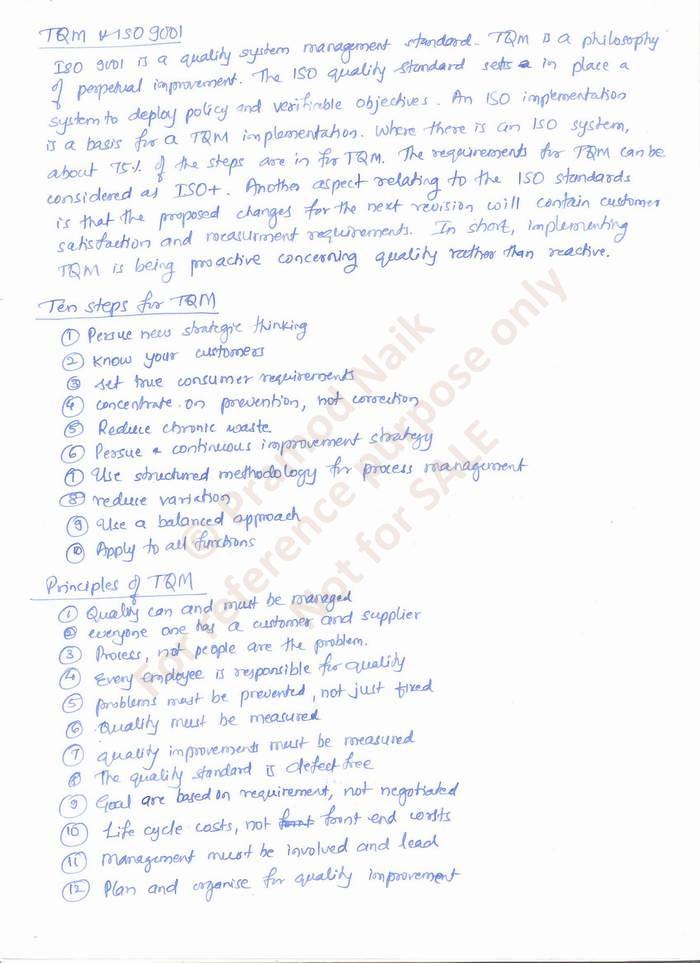 TQM & ISO 9001
ISO 9001 is a quality system management standard. TQM is a philosophy
of perpetual improvement. The ISO quality standard sets a in place a
system to deploy policy and verifiable objectives. An ISO implementation
is a basis for a TQM implementation. Where there is an ISO system,
about 75% of the steps are in for TQM. The requirements for TQM can be
considered as ISO+. Another aspect relating to the ISO standards
is that the proposed changes for the next revision will contain customer
satisfaction and measurment requirements. In short, implementing
TQM is being proactive concerning quality rather than reactive.
Ten steps for TQM
① Persue new strategic thinking
② Know your customers
③ set true consumer requirements
④ concentrate on prevention, not correction
⑤ Reduce chronic waste
⑥ Persue a continuous improvement strategy
⑦ Use structured methodology for process management
⑧ reduce variation
⑨ Use a balanced approach
⑩ Apply to all functions
Principles of TQM
① Quality can and must be managed
② everyone one has a customer and supplier
③ Process, not people are the problem.
④ Every employee is responsible for quality
⑤ problems must be prevented, not just fixed
⑥ Quality must be measured
⑦ quality improvements must be measured
⑧ The quality standard is defect free
⑨ Goal are based on requirement, not negotiated
⑩ Life cycle costs, not front end costs
⑪ management must be involved and lead
⑫ Plan and organise for quality improvement
© Pramod Naik
For reference purpose only
Not for SALE